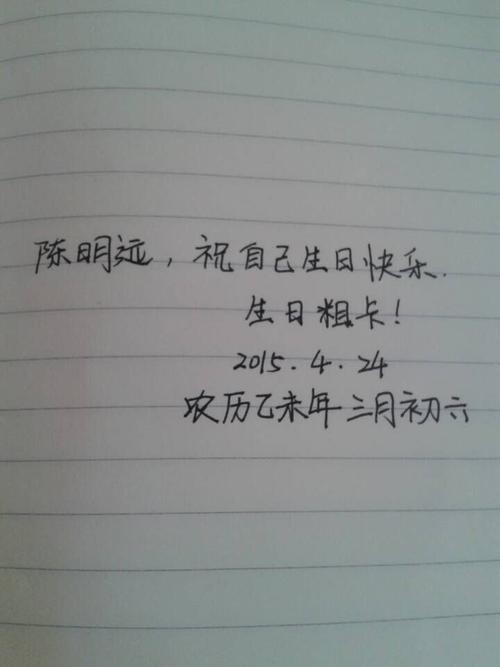 陈明远，祝自己生日快乐.
生日粗卡！
2015.4.24
农历乙未年三月初六